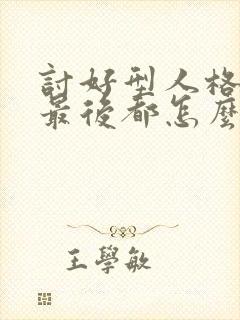 討好型人格
最後都怎麼
王學敏